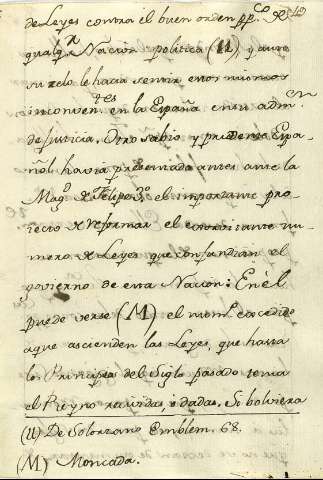 de Leyes contra el buen orden pp.co de
qualqa Nacion politica (U), y aun
su zelo le hacia sentir estos mismos
inconvenies en la España en su admn
de Justicia. Otro sabio y prudente Espa-
ñol havia presentado antes ante la
Magd de Felipe 3o el importante pro-
iecto de reformar el exorbitante nu-
mero de Leyes que confundian el
govierno de esta Nacion: En èl
puede verse (M) el numo excesivo
a que ascienden las Leyes, que hasta
los Principios del Siglo pasado tenia
el Reyno recividas, o dadas. Si bolviera
(U) De Solorzano Emblem. 68.
(M) Moncada.